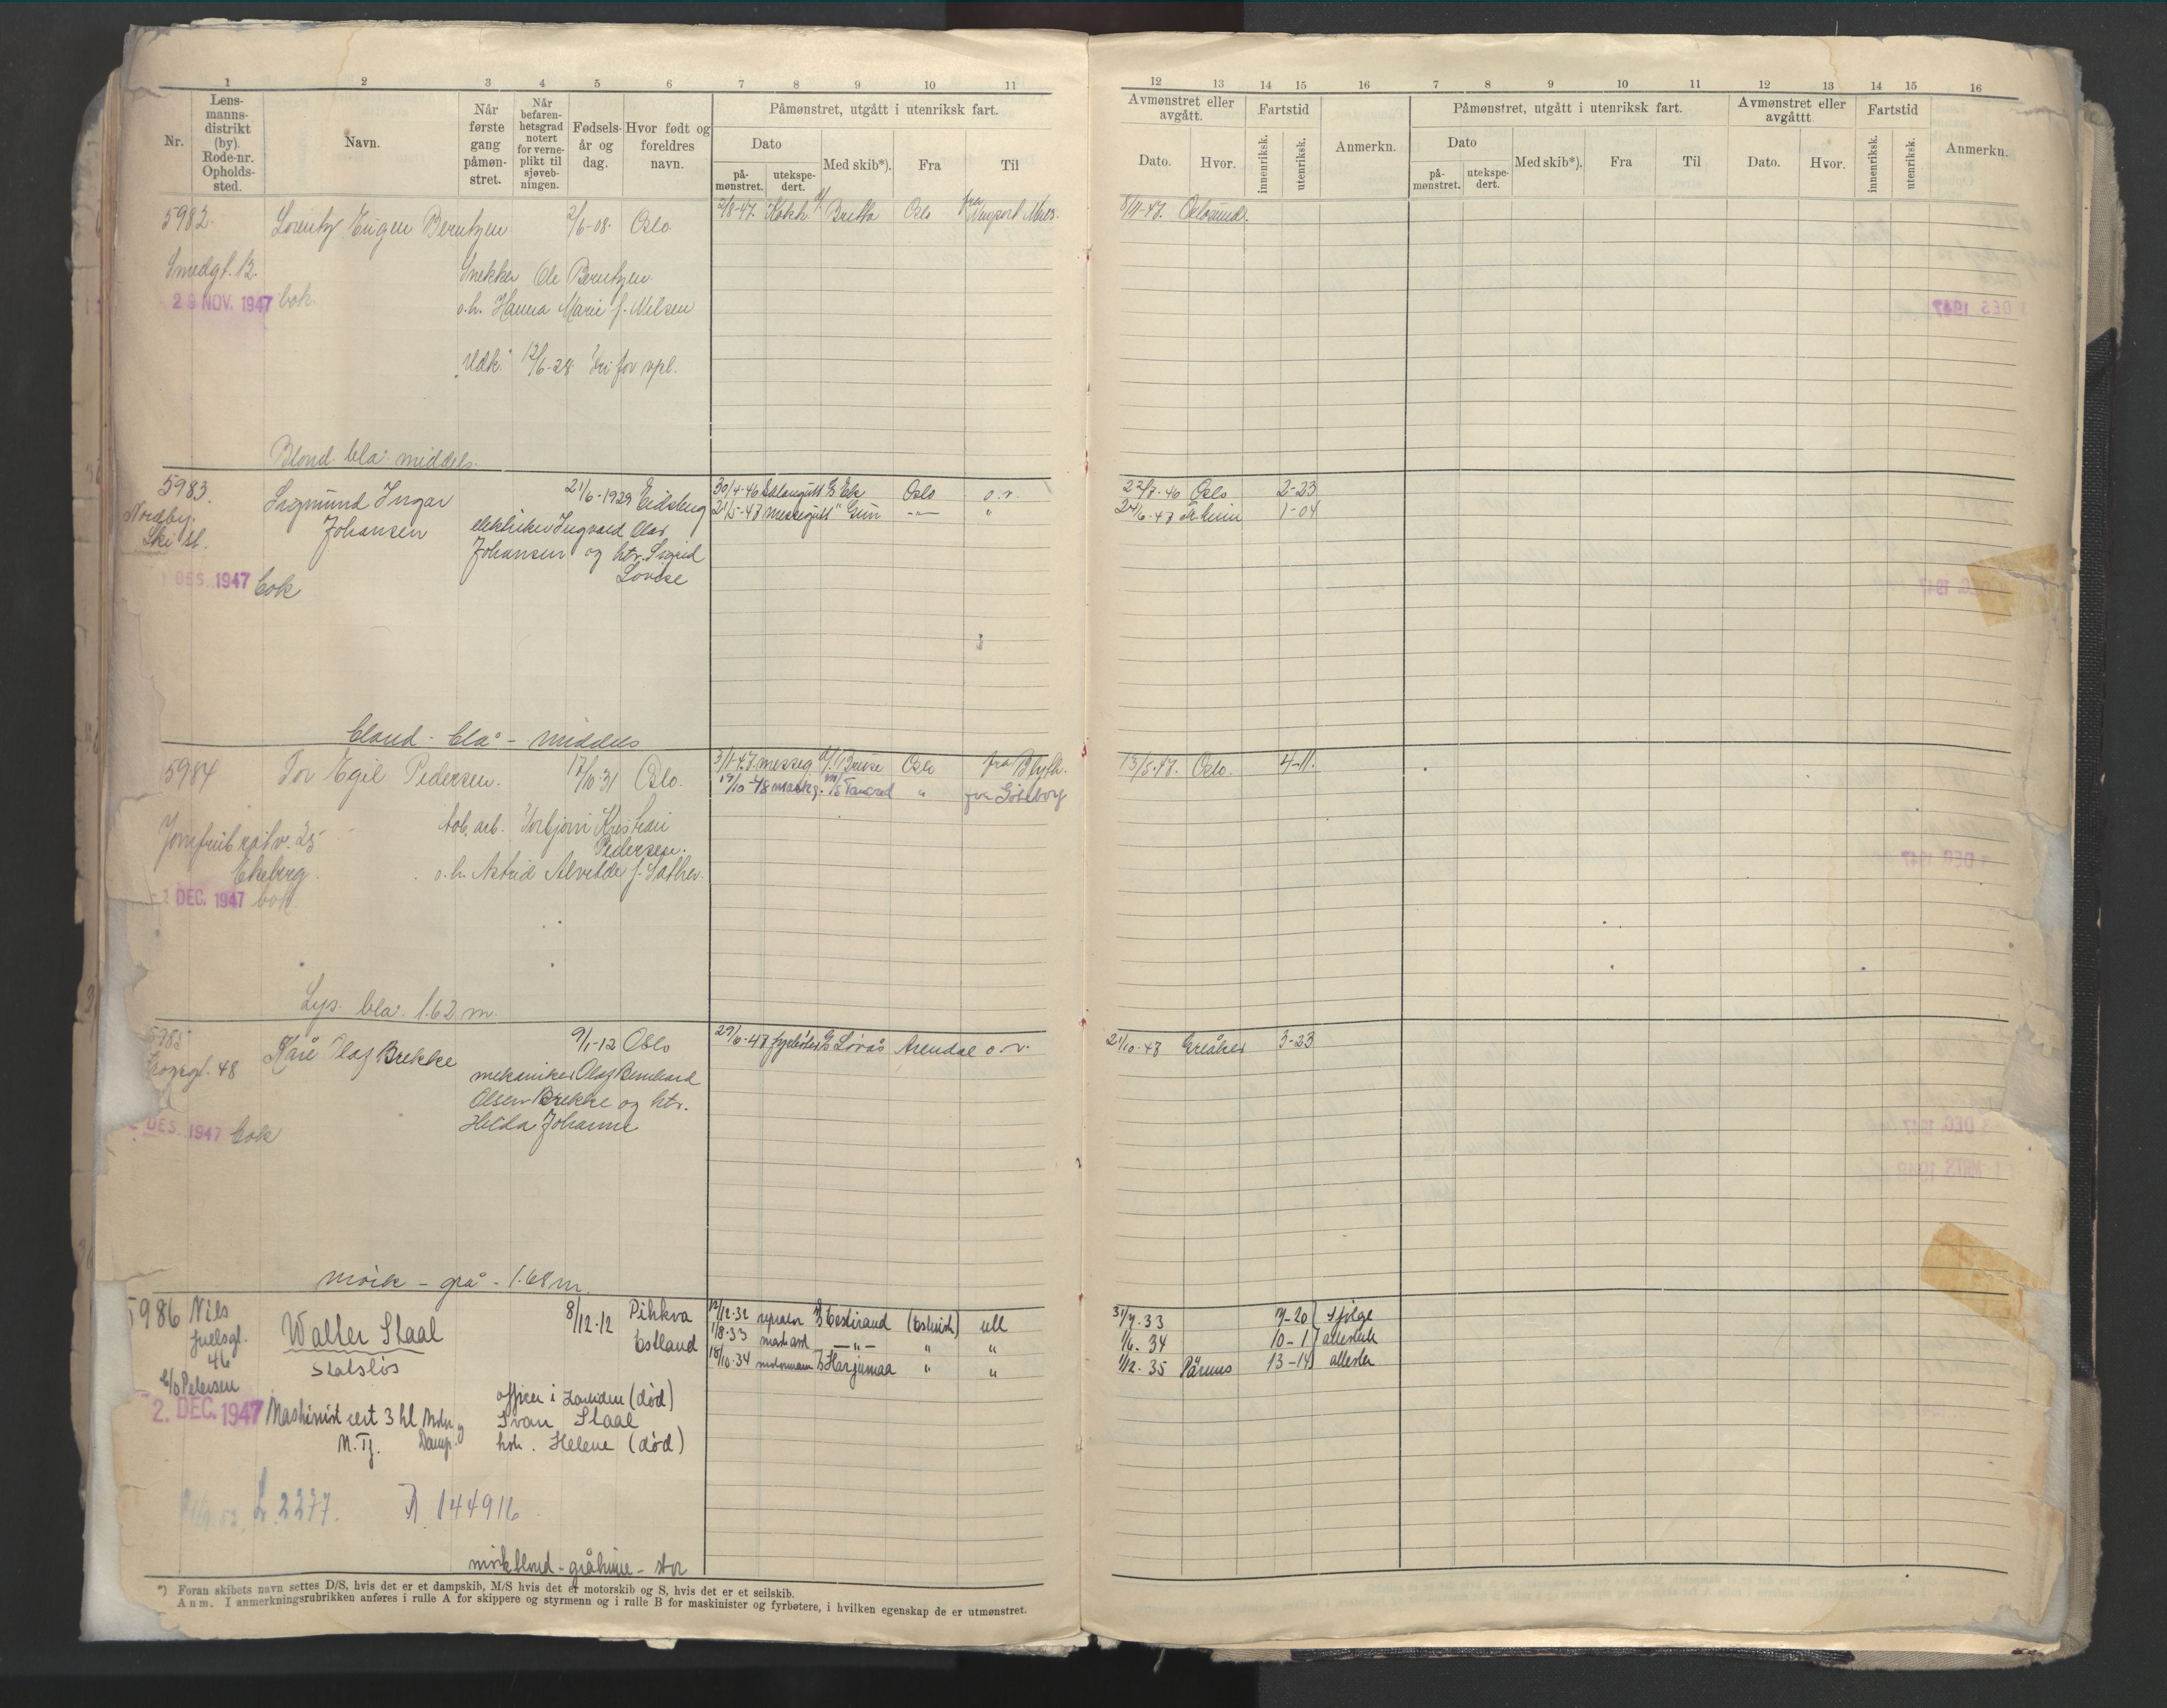 1 2 3 4 5 6 7 8 9 10 11
Nr.
Lens-
manns-
distrikt
(by).
Rode-nr.
Opholds-
sted.
Navn.
Når
første
gang
påmøn-
stret.
Når
befaren-
hetsgrad
notert
for verne-
plikt til
sjøveb-
ningen.
Fødsels-
år og
dag.
Hvor født og
foreldres
navn.
Påmønstret, utgått i utenriksk fart.
Dato
på-
mønstret.
utekspe-
dert.
Med skib*).
Fra
Til
5982 Lorentz Eugen Berntzen 2/6-08 Oslo 2/8-47 Kokk Britta Oslo fra
Smedgt. 12. Snekker Ole Berntzen
29 NOV. 1947 bok. o.h. Hanna Marie f. Nilsen
Udk. 12/6-28 Fri for vpl.
Blond blå middels.
5983. Sigmund Ingar 21/6-1929 Eidsberg 30/4-46 Oslo o.v.
Nordby. Johansen elektriker Ingvald Olav 21/5-47 messegutt Gun — " — "
Ski st. Johansen og htr. Sigrid
Lovise
1 DES. 1947 bok
bland - blå - middels
5984 Tor Egil Pedersen. 17/10-31 Oslo. 3/1-47. messeg. Bruse Oslo fra Blyth.
19/10-48 M/S Tancred " fra Göteborg
tob. arb. Torbjørn Kristian
Pedersen.
Ekeberg. o.h. Astrid Alvilde f. Sæther.
2 DEC. 1947 bok.
Lys. blå. 1.62 m.
5985 Kåre Olaf Brekke 9/1-12 Oslo 29/6-47 fyrbøter Løvås Arendal o.v.
gt. 48 mekaniker Olaf Bernhard
Olsen Brekke og htr.
Hilda Johanne
DES. 1947 bok
mørk - grå - 1.68 m.
5986 Nils Walter Staal 8/12-12 Pihkva 12/12-32 Eestirand (Estnisk) ull
Juelsgt. Estland 1/8-33 mask.asst — " — " "
46 statsløs 18/10-34 motormann Harjumaa " "
c/o Petersen
2. DEC. 1947 Maskinist cert 3 kl Motor og officer i (død)
M. Tj. Damp. Ivan Staal
hstr. Helene (død)
L. 2277. A 144916
mørkblond - gråbrune - stor
*) Foran skibets navn settes D/S, hvis det er et dampskib, M/S hvis det er motorskib og S, hvis det er et seilskib.
Anm. I anmerkningsrubrikken anføres i rulle A for skippere og styrmenn og i rulle B for maskinister og fyrbøtere, i hvilken egenskap de er utmønstret.
12 13 14 15 16 7 8 9 10 11 12 13 14 15 16
Avmønstret eller
avgått.
Dato.
Hvor.
Fartstid
innenriksk.
utenriksk.
Anmerkn.
Påmønstret, utgått i utenriksk fart.
Dato
på-
mønstret.
utekspe-
dert.
Med skib*).
Fra
Til
Avmønstret eller
avgåttt.
Dato.
Hvor.
Fartstid
innenriksk.
utenriksk.
Anmerkn.
8/11-47.
22/7-46 Oslo 2-23
24/6-47 1-04
13/5-47. Oslo. 4-11.
21/10-47 Greåker 3-23
31/7-33 7-20 ifølge
1/6-34 10-1
1/12-35 Pärnus 13-14